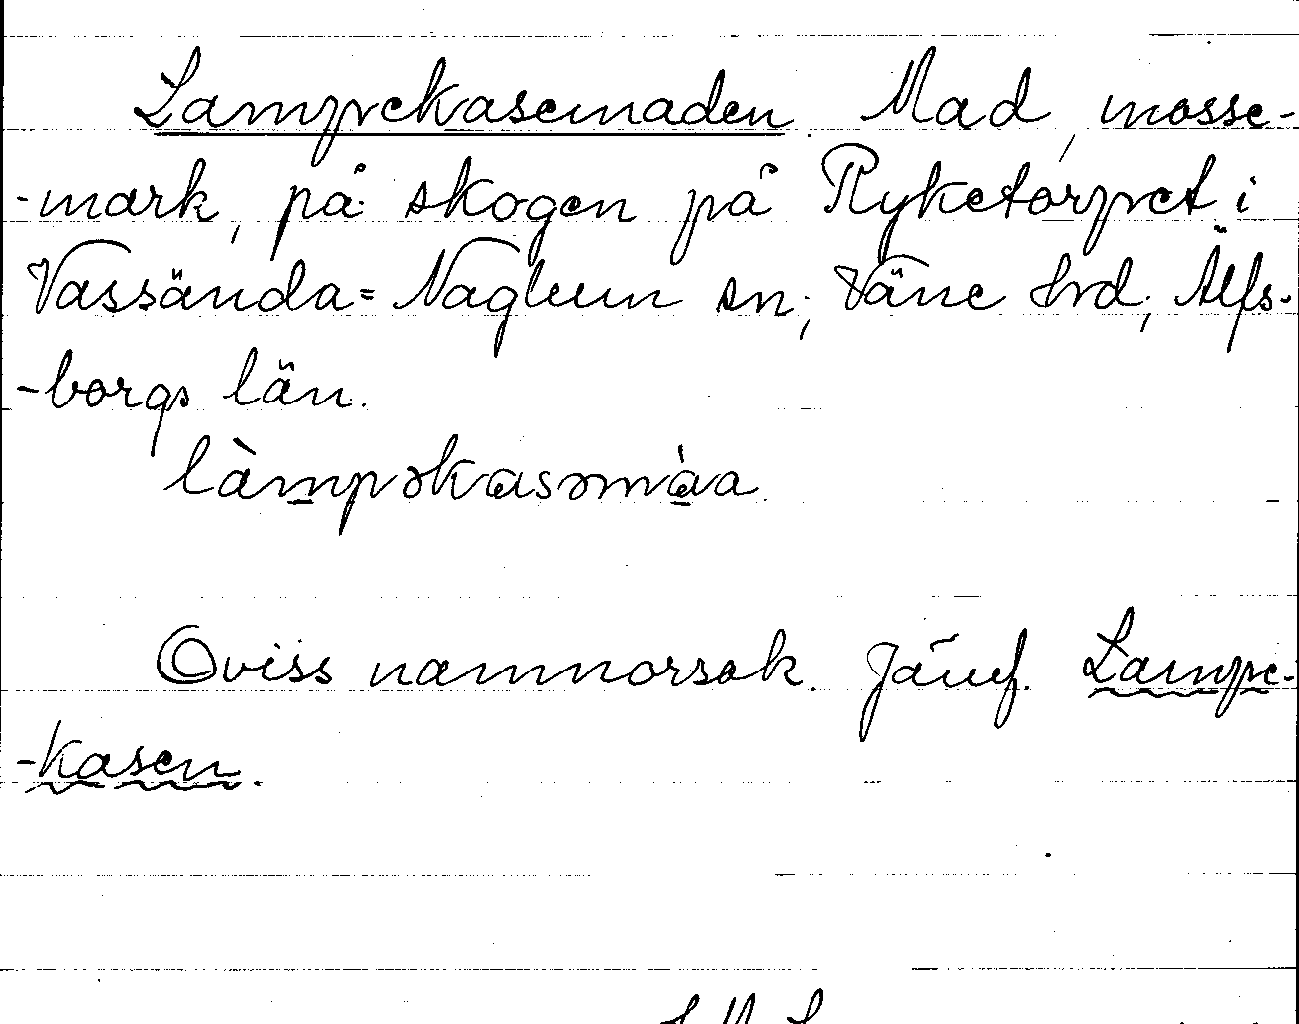 Lampekasemaden. Mad, mosse-
-mark, på skogen på Ryketorpet i
Vassända=Naglum sn; Väne hrd; Älfs-
-borgs län.
làmpəkasəmàa.
Oviss namnorsak. Jämf. Lampe-
-kasen.